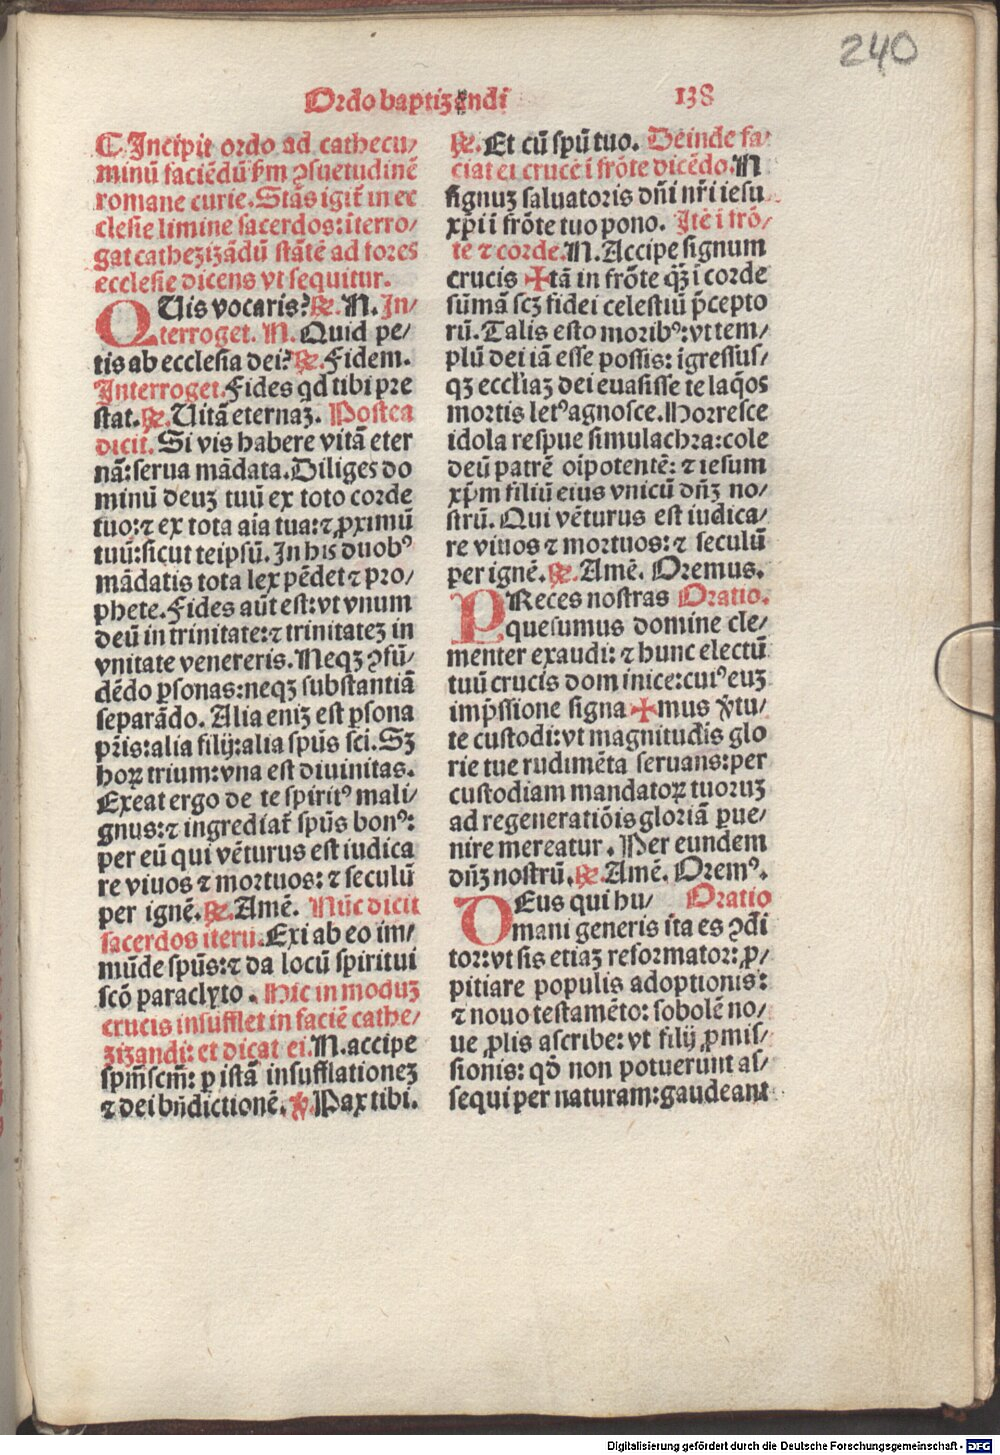 240
Ordo baptizandi 138
¶ Incipit ordo ad cathecu/
minū faciēdū ẜm ꝯsuetudinē
romane curie. Stās igit᷑ in ec
clesie limine sacerdos: īterro/
gat cathezizādū stātē ad fores
ecclesie dicens vt sequitur.
QUis vocaris? ℞. N. In/
terroget. N. Quid pe/
tis ab ecclesia dei? ℞. Fidem.
Interroget. Fides qd tibi pre
stat. ℞. Uitā eternaꝫ. Postea
dicit. Si vis habere vitā eter
nā: serua mādata. Diliges do
minū deuꝫ tuū ex toto corde
tuo: ⁊ ex tota aīa tua: ⁊ ꝓximū
tuū: sicut teipsū. In his duobꝰ
mādatis tota lex pēdet ⁊ pro/
phete. Fides aūt est: vt vnum
deū in trinitate: ⁊ trinitateꝫ in
vnitate venereris. Neqꝫ ꝯfū/
dēdo ꝑsonas: neqꝫ substantiā
separādo. Alia eniꝫ est ꝑsona
pr̄is: alia filij: alia spūs sci. Sꝫ
hoꝝ trium: vna est diuinitas.
Exeat ergo de te spiritꝰ mali/
gnus: ⁊ ingrediat᷑ spūs bonꝰ:
per eū qui vēturus est iudica
re viuos ⁊ mortuos: ⁊ seculū
per ignē. ℞. Amē. Nūc dicit
sacerdos iterū. Exi ab eo im/
mūde spūs: ⁊ da locū spiritui
scō paraclyto. Hic in moduꝫ
crucis insufflet in faciē cathe/
zizandi: et dicat ei. N. accipe
spm̄ scm̄: ꝑ istā insufflationeꝫ
⁊ dei bn̄dictionē. ℣. Pax tibi.
℞. Et cū spū tuo. Deinde fa/
ciat ei crucē ī frōte dicēdo. N
signuꝫ saluatoris dn̄i nr̄i iesu
xp̄i ī frōte tuo pono. Itē ī frō/
te ⁊ corde. N. Accipe signum
crucis ✠ tā in frōte qꝫ̄ ī corde
sūmā scꝫ fidei celestiū p̄cepto
rū. Talis esto moribꝰ: vt tem/
plū dei iā esse possis: īgressus/
qꝫ eccl'iaꝫ dei euasisse te laq̄os
mortis letꝰ agnosce. Horresce
idola respue simulachra: cole
deū patrē oīpotentē: ⁊ iesum
xp̄m filiū eius vnicū dn̄ꝫ no/
strū. Qui vēturus est iudica/
re viuos ⁊ mortuos: ⁊ seculū
per ignē. ℞. Amē. Oremus.
PReces nostras Oratio.
quesumus domine cle/
menter exaudi: ⁊ hunc electū
tuū crucis dominice: cuiꝰ euꝫ
imp̄ssione signa ✠ mus v̄tu/
te custodi: vt magnitudīs glo
rie tue rudimēta seruans: per
custodiam mandatoꝝ tuoruꝫ
ad regeneratiōis gloriā ꝑue/
nire mereatur. Per eundem
dn̄ꝫ nostrū. ℞. Amē. Oremꝰ.
DEus qui hu/ Oratio
mani generis ita es ꝯdi
tor: vt sis etiaꝫ reformator: ꝓ/
pitiare populis adoptionis:
⁊ nouo testamēto: sobolē no/
ue ꝓlis ascribe: vt filij ꝓmis/
sionis: qđ non potuerunt as/
sequi per naturam: gaudeant
Digitalisierung gefördert durch die Deutsche Forschungsgemeinschaft - DFG